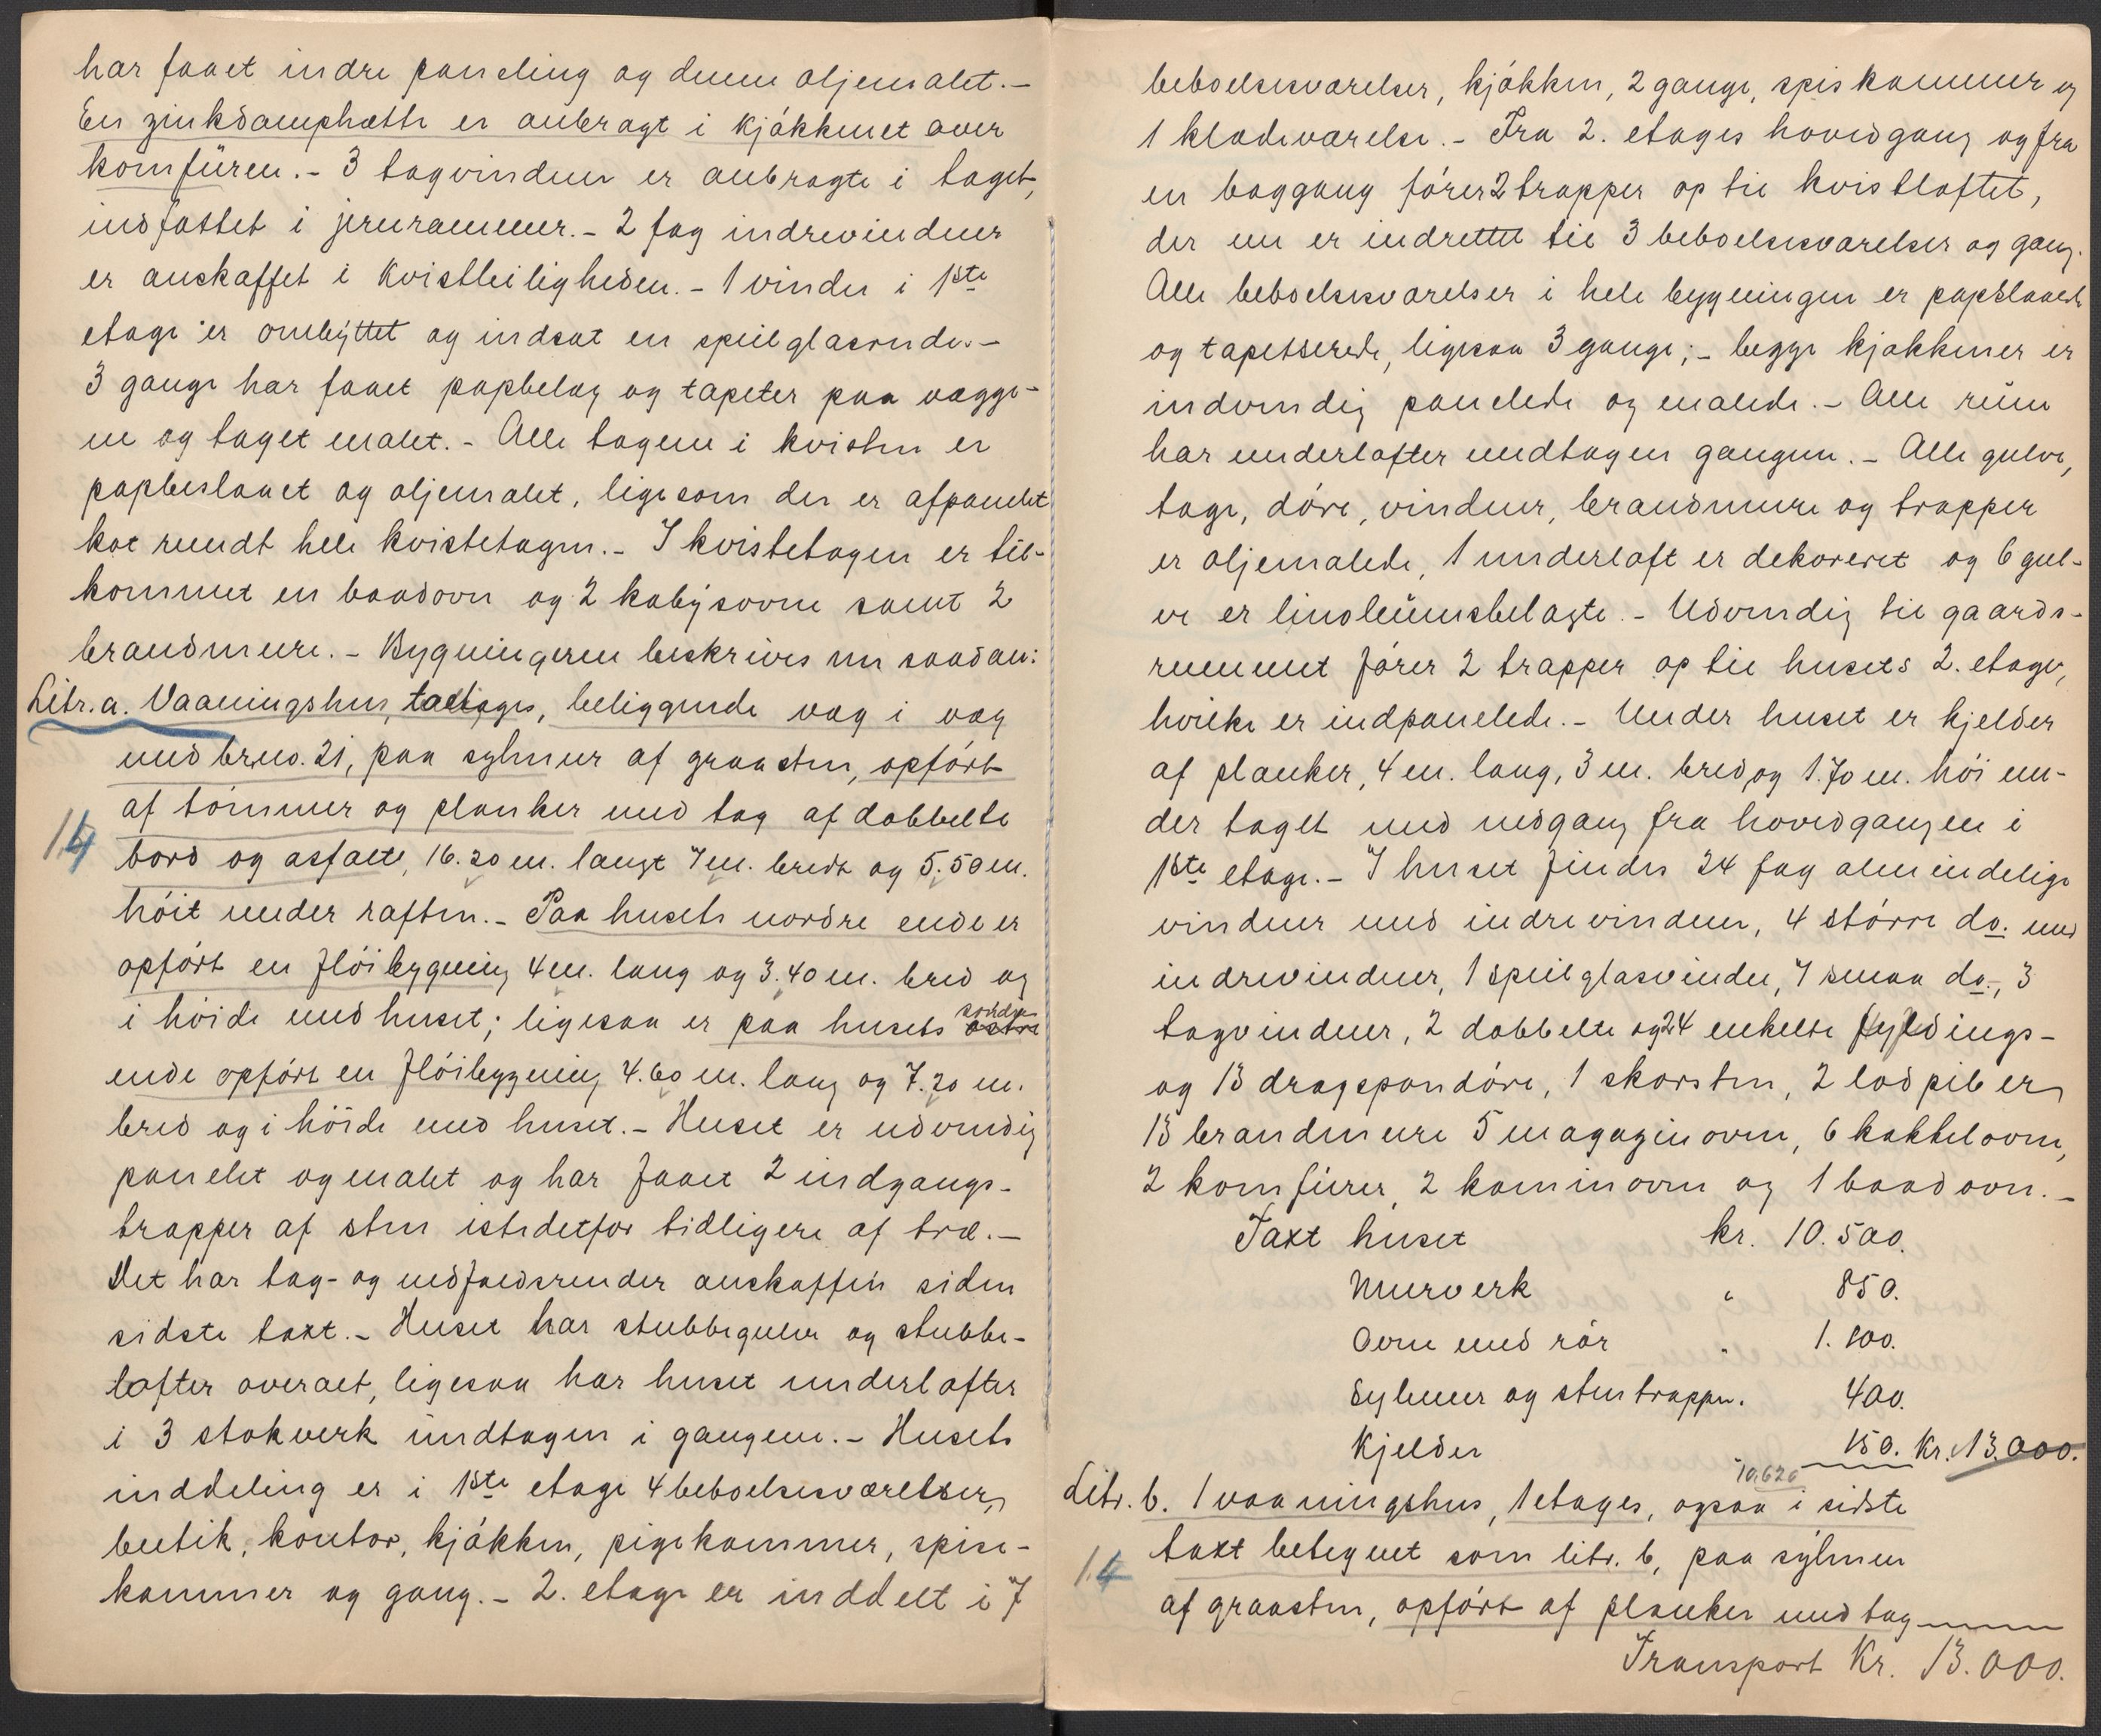 har faaet indre paneling og denne oljemalet.-
En zinkdamphætte er anbragt i kjøkkenet over
komfüren.- 3 tagvinduer er anbragte i taget,
indfattet i jernrammer.- 2 fag indrevinduer
er anskaffet i kvistleiligheden.- 1 vindu i 1ste
etage er ombyttet og indsat en speilglasrude.-
3 gange har faaet papbelæg og tapeter paa vægge-
ne og taget malet.- Alle tagene i kvisten er
papbeslaaet og oljemalet, ligesom der er afpanelet
kot rundt hele kvistetagen.- I kvistetagen er til-
kommet en baadovn og 2 kabysovne samt 2
brandmure.- Bygningerne beskrives nu saadan:
Litr. a. Vaaningshus, toetages, beliggende væg i væg
med br.no. 21, paa sylmur af graasten, opført
af tømmer og planker med tag af dobbelte
14
bord og asfalt, 16.20 m. langt 7 m. bredt og 5.50 m.
høit under raften.- Paa husets nordre ende er
opført en fløibygning 4 m. lang og 3.40 m. bred og
søndre
i høide med huset; ligesaa er paa husets østre
ende opført en fløibygning 4.60 m. lang og 7.20 m.
bred og i høide med huset.- Huset er udvendig
panelet og malet og har faaet 2 indgangs-
trapper af sten istedetfor tidligere af træ.-
Det har tag- og nedfaldsrender anskaffen siden
sidste taxt.- Huset har stubbegulve og stubbe-
lofter overalt, ligesaa har huset underlofter
i 3 stokverk undtagen i gangene.- Husets
inddeling er i 1ste etage 4 beboelsesværelser,
butik, kontor, kjøkken, pigekammer, spise-
kammer og gang.- 2. etage er inddelt i 7
beboelsesværelser, kjøkken, 2 gange, spiskammer og
1 klædeværelse.- Fra 2. etages hovedgang og fra
en baggang fører 2 trapper op til kvistloftet,
der nu er indrettet til 3 beboelsesværelser og gang.
Alle beboelsesværelser i hele bygningen er papslaaede
og tapetserede, ligesaa 3 gange;- begge kjøkkener er
indvendig panelede og malede.- Alle rüm
har underlofter undtagen gangene.- Alle gulve,
tage, døre, vinduer, brandmure og trapper
er oljemalede, 1 underloft er dekoreret og 6 gul-
ve er linoleümsbelagte.- Udvendig til gaards-
rummet fører 2 trapper op til husets 2. etage,
hvilke er indpanelede.- Under huset er kjelder
af planker, 4 m. lang, 3 m. bred, og 1.70 m. høi un-
der taget med nedgang fra hovedgangen i
1ste etage.- I huset findes 24 fag almindelige
vinduer med indrevinduer, 4 større do. med
indrevinduer, 1 speilglasvindu, 7 smaa do., 3
tagvinduer, 2 dobbelte og 24 enkelte fyldings-
og 13 dragspøndøre, 1 skorsten, 2 lodpiber,
13 brandmure 5 magazinovne, 6 kakkelovne,
2 komfürer, 2 kaminovne og 1 baadovn.-
Taxt huset kr. 10.500.
Murverk " 850.
Ovne med rør " 1.100.
Sylmur og stentrapper. 400.
Kjelder 150. Kr. 13.000.
10.620
Litr. b. 1 vaaningshus, 1 etages, ogsaa i sidste
taxt betegnet som litr. b, paa sylmur
14
af graasten, opført af planker med tag
Transport Kr. 13.000.